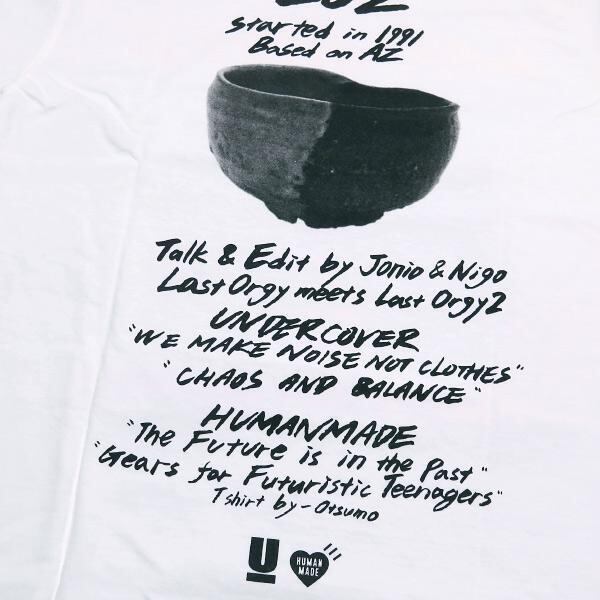 started in 1991
Based on AZ
Talk & Edit by Jonio & Nigo
Last Orgy meets Last Orgy2
UNDERCOVER
"WE MAKE NOISE NOT CLOTHES"
"CHAOS AND BALANCE"
HUMANMADE
"The Future is in the Past"
"Gears for Futuristic Teenagers"
Tshirt by - Otsumo
U
HUMAN
MADE